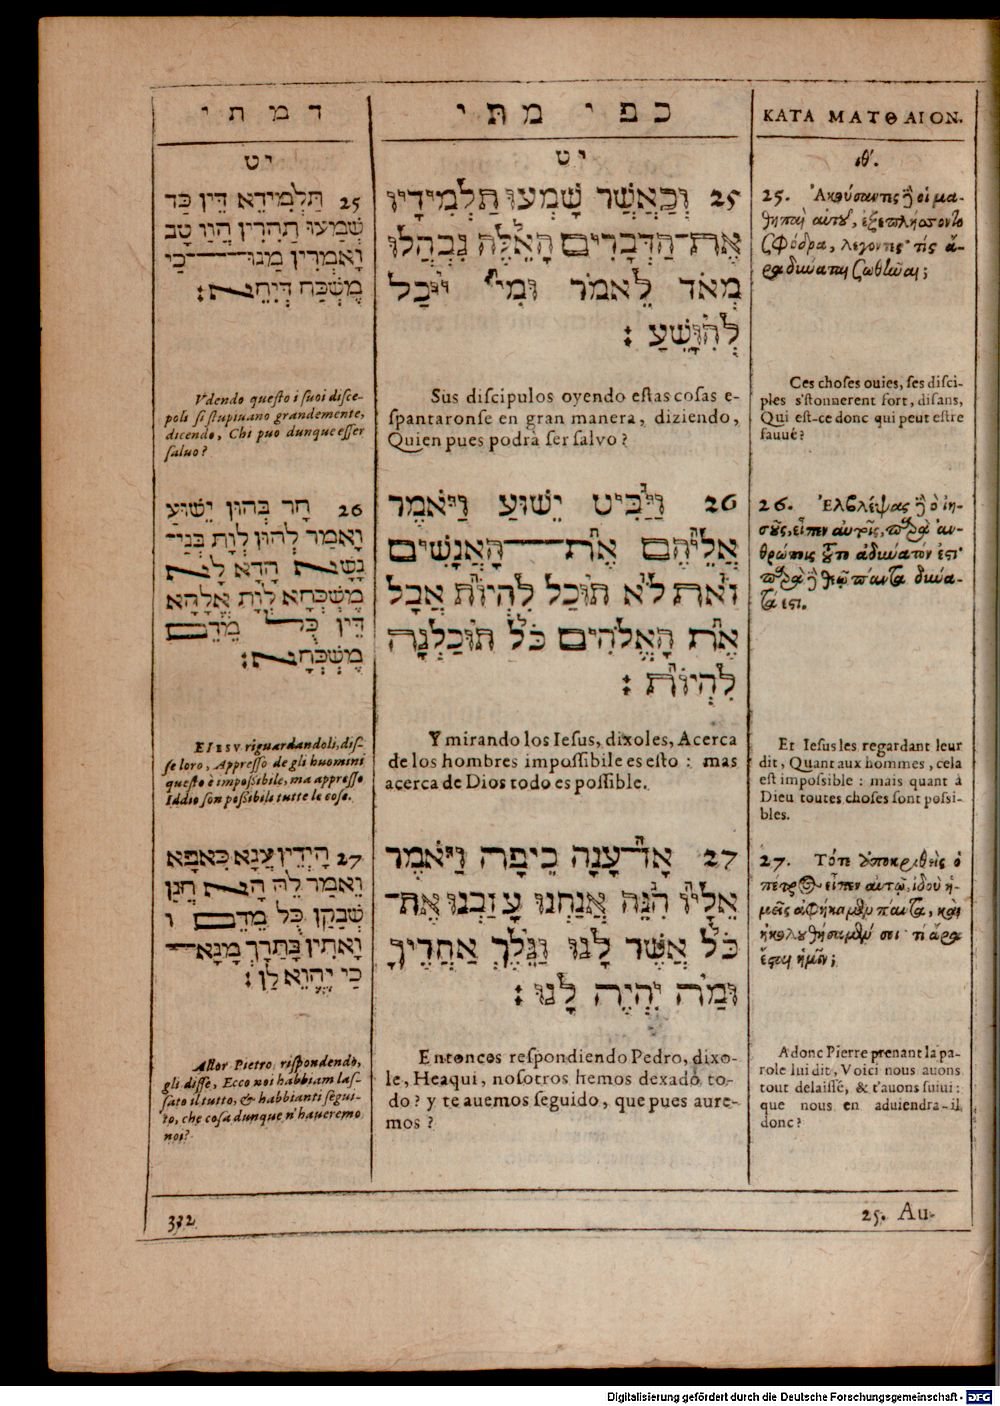 דמתי
יט
25 תַּלְמִידֵא דֵּין כַּד
שְׁמַעוּ תַהִרִין הֲווַ טָב
וָאמְרִין מַנוּ כַי
מֶשְׁכַּח דְּיִחֵא׃
Vdendo questo i suoi disce-
poli si stupiuano grandemente,
dicendo, Chi puo dunque esser
saluo?
26 חָר בְּהוּן יֵשׁוּע
וָאמַר לְהוּן לְוָת בְּנַי־
נָשָׁא הָדֵא לָא
מֶשְׁכְּחָא לְוָת אֲלָהָא
דֵּין כֻּל מֵדֵם
מֶשְׁכְּחָא׃
E IESV riguardandoli, dis-
se loro, Appresso de gli huomini
questo è impossibile, ma appresso
Iddio son possibili tutte le cose.
27 הָיְדֵין עֲנָא כִּאפָא
וֵאמַר לֵהּ הָא חֲנַן
שְׁבַקְן כֻּל מֵדֵם ו
וָאתִין בָּתַרָך מָנָא
כַי יֶהֱוֵא לַן׃
Allor Pietro rispondendo,
gli disse, Ecco noi habbiam las-
sato il tutto, & habbianti segui-
to, che cosa dunque n'haueremo
noi?
332
כפי מתי
יט
25 וְכַאֲשֶׁר שָׁמְעוּ תַּלְמִידָיו
אֶת־הַדְּבָרִים הָאֵלֶּה נִבְהֲלוּ
מְאֹד לֵאמֹר וּמִי יוּכַל
לְהִוָּשֵׁעַ׃
Sus discipulos oyendo estas cosas e-
spantaronse en gran manera, diziendo,
Quien pues podrà ser salvo?
26 וַיַּבִּיט יֵשׁוּעַ וַיֹּאמֶר
אֲלֵיהֶם אֶת הָאֲנָשִׁים
זֹאת לֹא תוּכַל לִהְיוֹת אֲבָל
אֶת הָאֱלֹהִים כֹּל תּוּכַלְנָה
לִהְיוֹת׃
Y mirando los Iesus, dixoles, Acerca
de los hombres impossibile es esto: mas
acerca de Dios todo es possible.
27 אָז־עָנָה כֵיפָה וַיֹּאמֶר
אֵלָיו הִנֵּה אֲנַחְנוּ עָזַבְנוּ אֶת־
כֹּל אֲשֶׁר לָנוּ וַנֵּלֶךְ אַחֲרֶיךָ
וּמַה יִּהְיֶה לָנוּ׃
Entonces respondiendo Pedro, dixo-
le, Heaqui, nosotros hemos dexado to-
do? y te auemos seguido, que pues aure-
mos?
ΚΑΤΑ ΜΑΤΘΑΙΟΝ.
ιθʹ.
25. Ἀκούσαντες ἢ οἱ μα-
θηταὶ αὐτοῦ, ἐξεπλήσσοντο
σφόδρα, λέγοντες· τίς ἄ-
ρα δύναται σωθῆναι;
Ces choses ouies, ses disci-
ples s'stonnerent fort, disans,
Qui est-ce donc qui peut estre
sauué?
26. Ἐμβλέψας ἢ ὁ ἰη-
σοῦς, εἶπεν αὐτοῖς, παρὰ ἀν-
θρώποις τοῦτο ἀδύνατόν ἐστι·
παρὰ ἢ θεῷ πάντα δυνα-
τά ἐστι.
Et Iesus les regardant leur
dit, Quant aux hommes, cela
est impossible: mais quant à
Dieu toutes choses sont possi-
bles.
27. Τότε ἀποκριθεὶς ὁ
πέτρος εἶπεν αὐτῷ, ἰδοὺ ἡ-
μεῖς ἀφήκαμεν πάντα, καὶ
ἠκολουθήσαμέν σοι· τί ἄρα
ἔσται ἡμῖν;
Adonc Pierre prenant la pa-
role lui dit, Voici nous auons
tout delaissé, & t'auons suiui:
que nous en aduiendra-il
donc?
25. Au-
Digitalisierung gefördert durch die Deutsche Forschungsgemeinschaft - DFG